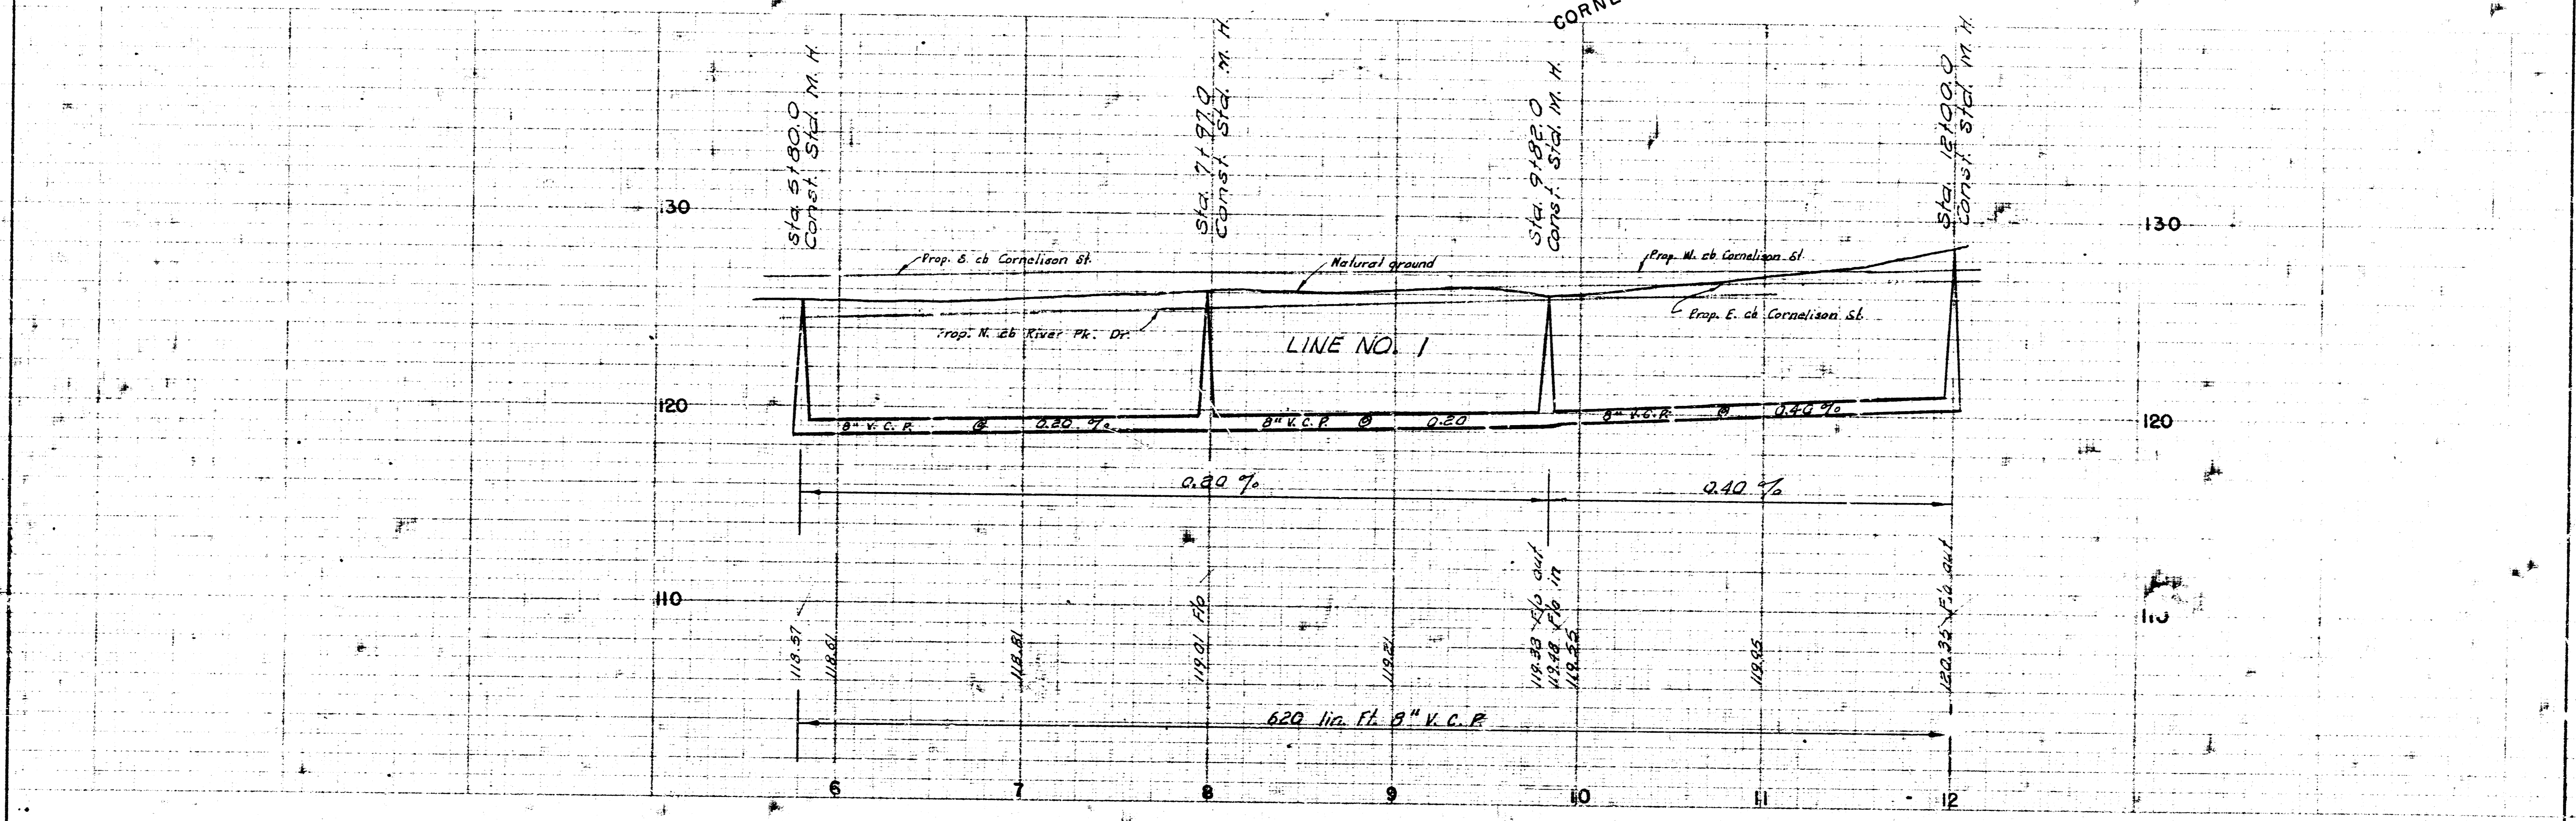 CORNE
Sta. 5+80.0
Const. Std. M. H.
Sta. 7+97.0
Const. Std. M. H.
Sta. 9+82.0
Const. Std. M. H.
Sta. 12+00.0
Const. Std. M. H.
130
130
Prop. S. cb Cornelison St.
Natural ground
Prop. W. cb Cornelison St.
Prop. N. cb River Pk. Dr.
LINE NO. 1
Prop. E. cb Cornelison St.
120
8" V. C. P. @ 0.20 %
8" V. C. P. @ 0.20
8" V.C.P. @ 0.40 %
120
0.20 %
0.40 %
110
110
118.57
118.61
118.81
119.01 F/o
119.21
119.38 F/o out
119.48 F/o in
119.55
119.95
120.35 F/o out
620 lin. Ft. 8" V. C. P.
6 7 8 9 10 11 12